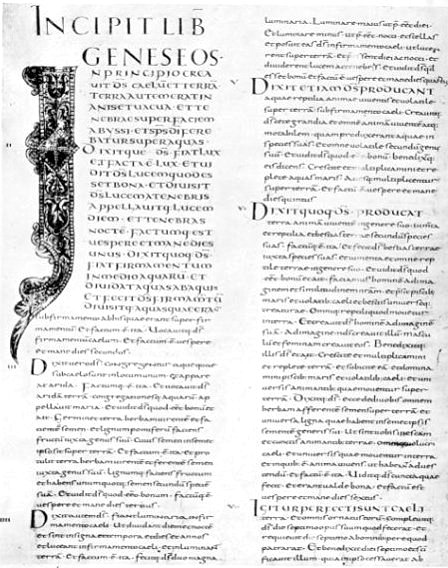 INCIPIT LIB
GENESEOS·
IN PRINCIPIO CREA
UIT DS CAELU ET TERRA
TERRA AUTEM ERAT IN
ANIS ET UACUA· ET TE
NEBRAE SUPER FACIEM
ABYSSI· ET SPS DI FERE
BATUR SUPER AQUAS·
DIXITQUE· DS· FIAT LUX
ET FACTA E LUX· ET UI
DIT DS LUCEM QUOD ES
SET BONA· ET DIUISIT
DS LUCEM A TENEBRIS
APPELLAUITQ LUCEM
DIEM· ET TENEBRAS
NOCTE· FACTUMQ EST
UESPERE ET MANE DIES
UNUS· DIXIT QUOQ DS·
FIAT FIRMAMENTUM
IN MEDIO AQUARU· ET
DIUIDAT AQUAS AB AQUIS
ET FECIT DS FIRMAMTU
DIUISITQ AQUAS QUAE ERAT
sub firmamento ab his quae erant super fir
mamentu· Et factum e ita· Uocauitq ds
firmamentu caelu· Et factu e uespere
et mane dies secundus·
Dixit uero ds· congregentur aquae quae
sub caelo sunt in locum unum· & appare
at arida· Factumq e ita· Et uocauit ds
arida terra· congregationesq aquaru ap
pellauit maria· Et uidit ds quod e&
ait· Germinet terra herba uirente et fa
ciente semen· et lignum pomiferu faciens
fructu iuxta genus suu· Cuius semen in se
ipso sit super terra· Et factu e ita· et pro
tulit terra herba uirente et ferente semen
iuxta genus suu· Lignumq faciens fructum
et habens unumquodq semente secundu specie
sua· Et uidit ds quod e& bonum· Factuq e
uespere et mane dies tertius·
Dixit autem ds· fiant luminaria in fir
mamento caeli· Ut diuidant diem ac nocte·
et sint in signa et tempora et dies et annos
et luceant in firmamento caeli· et inluminent
terra· Et factum e ita· fecitq ds duo magna
luminaria· Luminare maius ut
Et luminare minus ut nocti· et stellas
et posuit eas ds in firmamento caeli· ut lucer&
super terra· Et diei ac nocti· et
diuiderent lucem ac tenebras· Et uidit ds qd
ess& bonu· Et factu e uespere et mane dies quartus
Dixit etiam ds· producant
aquae reptile animae uiuentis et uolatile
super terra· sub firmamento caeli· Creauitq
ds coete grandia et omne anima uiuente atq
motabilem· quam produxerant aquae in
species suas· Et omne uolatile secundu genus
suu· Et uidit ds quod e& bonu· benedixitq
eis dicens· Crescite et multiplicamini et re
plete aquas maris· Auesq multiplicentur
super terra· Et factu e uespere et mane
dies quintus
Dixit quoq ds· producat
terra anima uiuente in genere suo· iumenta
et reptilia et bestias terrae secundu species
suas· factuq e ita· Et fecit ds bestias terrae
iuxta species suas· et iumenta et omne rep
tile terrae in genere suo· Et uidit ds quod
e& bonu· et ait· Faciamus homine ad ima
ginem et similitudinem nram· et praesit pisci
bus maris et uolatilib caeli et bestiis uniuersaeq
creaturae· Omniq reptili quod mouetur
in terra· Et creauit ds homine ad imagine
sua· Ad imagine di creauit illu· mascu
lu et femina creauit eos· Benedixitq
illis ds et ait· Crescite et multiplicamini
et replete terra· et subicite ea· et domina
mini piscib maris et uolatilib caeli· et uni
uersis animantib quae mouentur super
terra· Dixitq ds· ecce dedi uobis omnem
herba afferente semen super terra· et
uniuersa ligna quae habent in semetipsis
semente generis sui· Ut sint uobis in esca
et cunctis animantib terrae· omniq uolucri
caeli· et uniuersis quae mouentur in terra
et in quib e anima uiuens· ut habeant ad ues
cendu· Et factu e ita· Uidit ds cuncta quae
fecit· Et erant ualde bona· Et factu est
uespere et mane dies sextus·
Igitur perfecti sunt caeli
et terra· et omnis ornatus eoru· compleuitq
ds die septimo opus suum quod fecerat· et
requieuit die septimo ab omni opere quod
patrarat· Et benedixit diei septimo et sci
ficauit illum· quia in ipso cessauerat ab